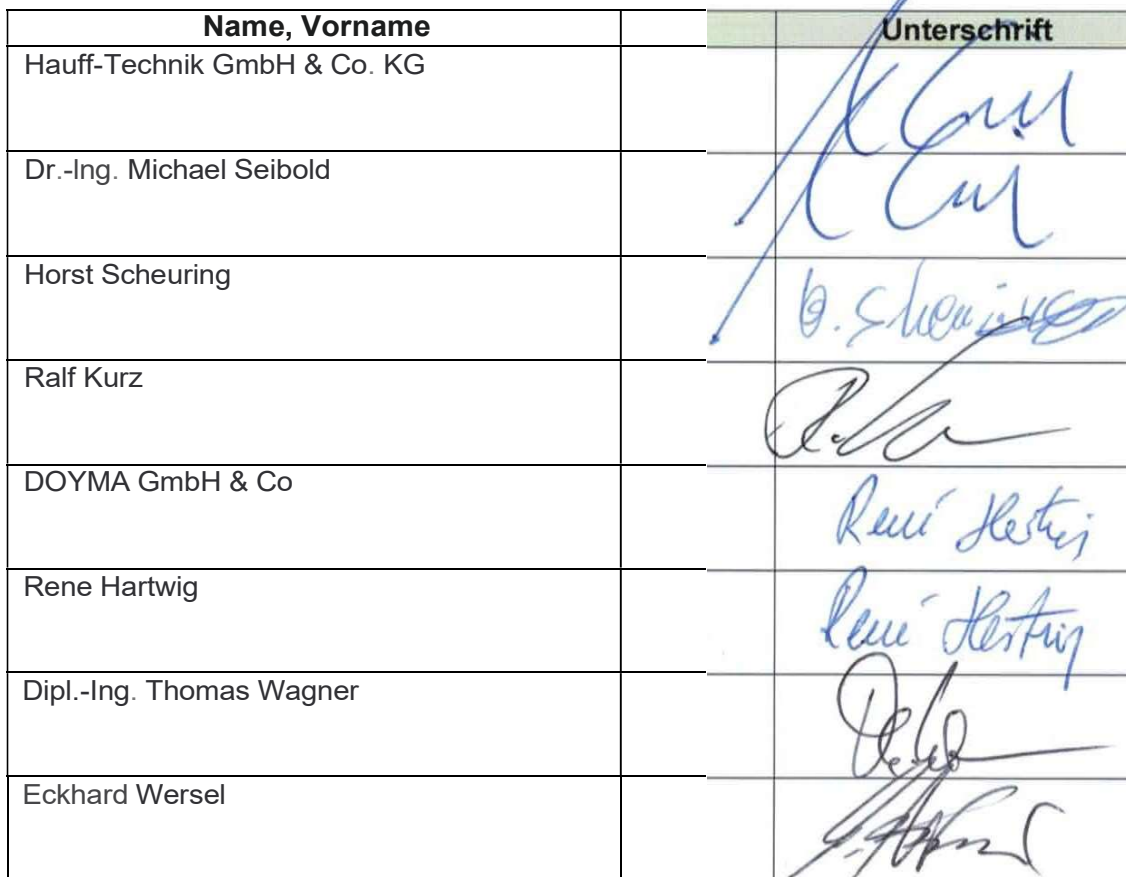 Name, Vorname Unterschrift
Hauff-Technik GmbH & Co. KG
Dr.-Ing. Michael Seibold
Horst Scheuring
Ralf Kurz
DOYMA GmbH & Co
René Hartwig
Rene Hartwig
René Hartwig
Dipl.-Ing. Thomas Wagner
Eckhard Wersel